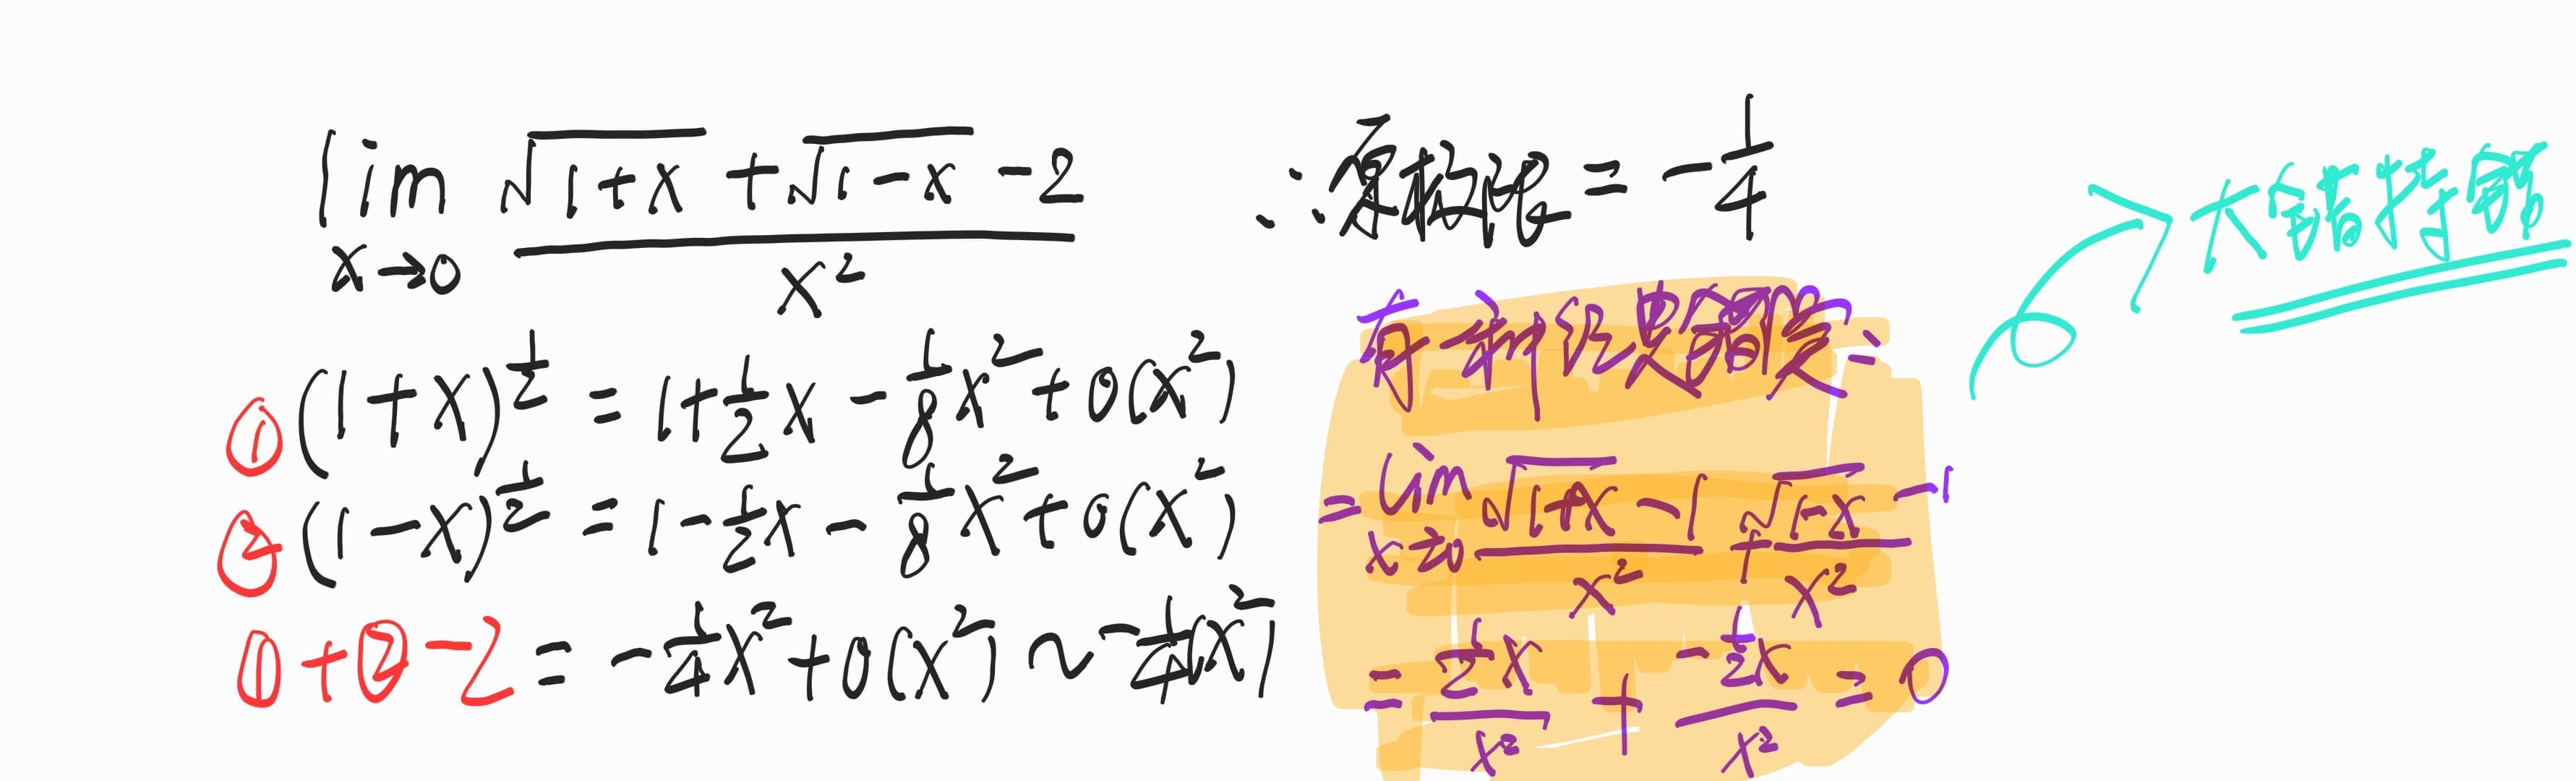 lim x→0 (√(1+x) + √(1-x) - 2) / x²
① (1+x)^(1/2) = 1 + 1/2 x - 1/8 x² + o(x²)
② (1-x)^(1/2) = 1 - 1/2 x - 1/8 x² + o(x²)
① + ② - 2 = -1/4 x² + o(x²) ~ -1/4(x²)
∴原极限 = -1/4
有一种经典错误:
= lim x→0 (√(1+x) - 1) / x² + (√(1-x) - 1) / x²
= (1/2 x) / x² + (-1/2 x) / x² = 0
大错特错